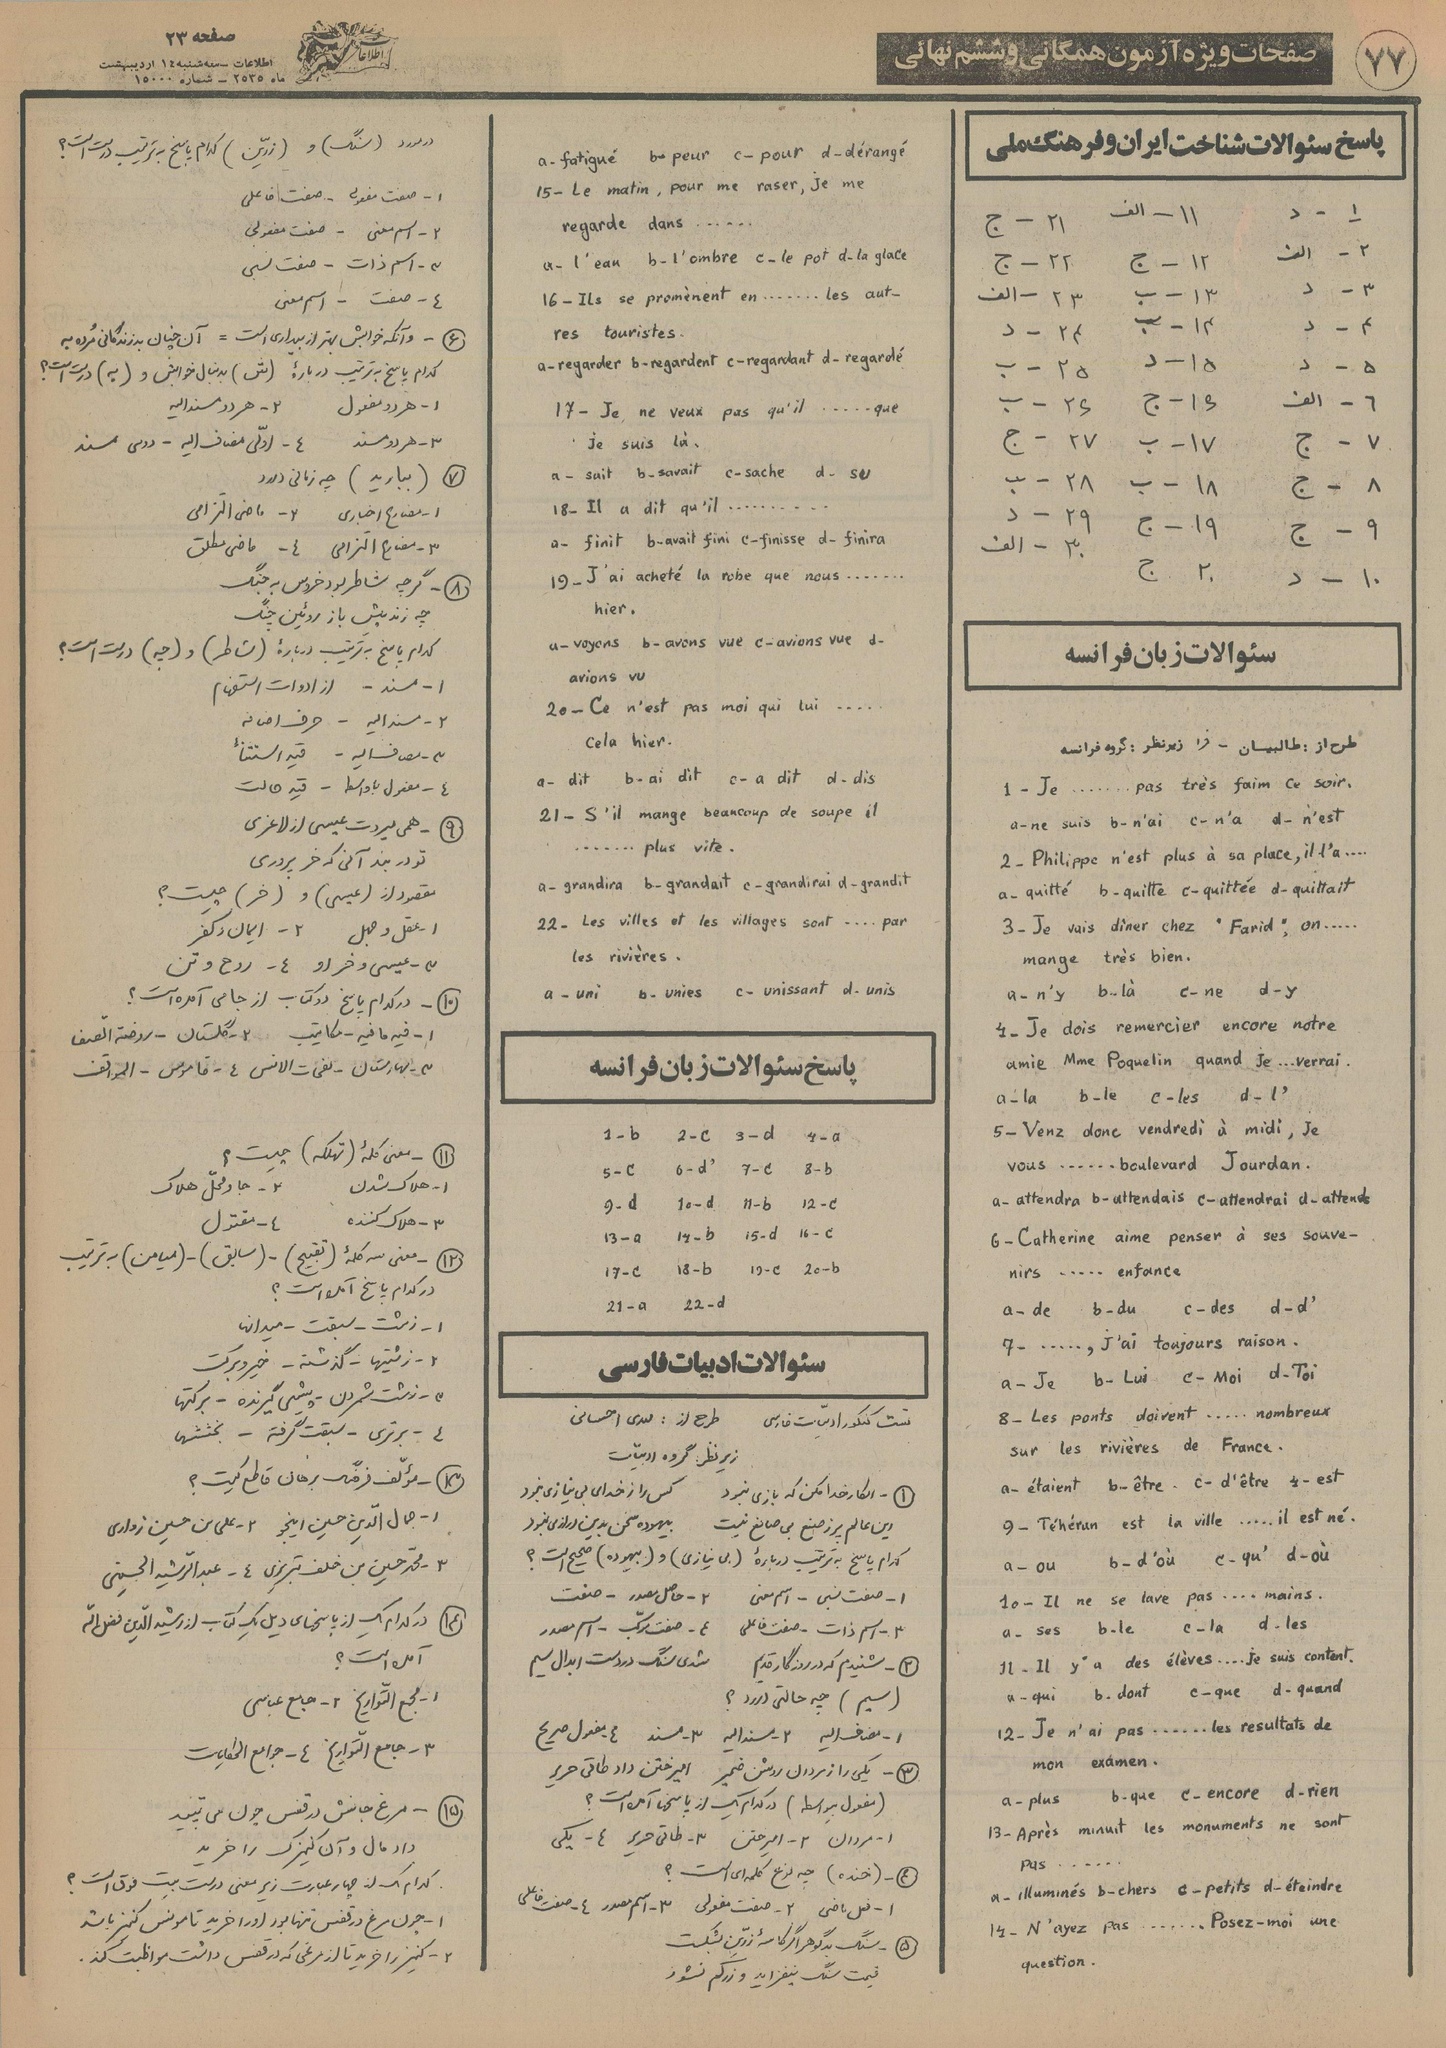 ۷۷
صفحات ویژه آزمون همگانی و ششم نهائی
صفحه ۲۳
اطلاعات – سه‌شنبه ۱٤ اردیبهشت
ماه ۲۵۳۵ – شماره ۱۵۰۰۰
پاسخ سئوالات شناخت ایران و فرهنگ ملی
۱ – د ۱۱ – الف ۲۱ – ج
۲ – الف ۱۲ – ج ۲۲ – ج
۳ – د ۱۳ – ب ۲۳ – الف
۴ – د ۱۴ – ب ۲۴ – د
۵ – د ۱۵ – د ۲۵ – ب
٦ – الف ۱۶ – ج ۲۶ – ب
۷ – ج ۱۷ – ب ۲۷ – ج
۸ – ج ۱۸ – ب ۲۸ – ب
۹ – ج ۱۹ – ج ۲۹ – د
۱۰ – د ۲۰ ج ۳۰ – الف
سئوالات زبان فرانسه
طرح از : طالبیان – فرا زیرنظر : گروه فرانسه
1 – Je ....... pas très faim ce soir.
a-ne suis b-n'ai c-n'a d-n'est
2 – Philippe n'est plus à sa place, il l'a ....
a-quitté b-quitte c-quittée d-quittait
3 – Je vais dîner chez "Farid", on .....
mange très bien.
a-n'y b-là c-ne d-y
4 – Je dois remercier encore notre
amie Mme Poquelin quand je ... verrai.
a-la b-le c-les d-l'
5 – Venz donc vendredi à midi, je
vous ...... boulevard Jourdan.
a-attendra b-attendais c-attendrai d-attends
6 – Catherine aime penser à ses souve-
nirs ..... enfance
a-de b-du c-des d-d'
7 – ....., j'ai toujours raison.
a-Je b-Lui c-Moi d-Toi
8 – Les ponts doivent ..... nombreux
sur les rivières de France.
a-étaient b-être. c-d'être 4-est
9 – Téhéran est la ville ..... il est né.
a-ou b-d'où c-qu' d-où
10 – Il ne se lave pas .... mains.
a-ses b-le c-la d-les
11 – Il y'a des élèves .... je suis content.
a-qui b-dont c-que d-quand
12 – Je n'ai pas ....... les resultats de
mon exámen.
a-plus b-que c-encore d-rien
13 – Après minuit les monuments ne sont
pas ......
a-illuminés b-chers c-petits d-éteindre
14 – N'ayez pas ....... Posez-moi une
question.
a-fatigué b-peur c-pour d-dérangé
15 – Le matin, pour me raser, je me
regarde dans ......
a-l'eau b-l'ombre c-le pot d-la glace
16 – Ils se promènent en ....... les aut-
res touristes.
a-regarder b-regardent c-regardant d-regardé
17 – Je ne veux pas qu'il ..... que
je suis là.
a-sait b-savait c-sache d-su
18 – Il a dit qu'il ..........
a-finit b-avait fini c-finisse d-finira
19 – J'ai acheté la robe que nous .......
hier.
a-voyons b-avons vue c-avions vue d-
avions vu
20 – Ce n'est pas moi qui lui .....
cela hier.
a-dit b-ai dit c-a dit d-dis
21 – S'il mange beaucoup de soupe il
....... plus vite.
a-grandira b-grandait c-grandirai d-grandit
22 – Les villes et les villages sont .... par
les rivières.
a-uni b-unies c-unissant d-unis
پاسخ سئوالات زبان فرانسه
1-b 2-c 3-d 4-a
5-c 6-d' 7-c 8-b
9-d 10-d 11-b 12-c
13-a 14-b 15-d 16-c
17-c 18-b 19-c 20-b
21-a 22-d
سئوالات ادبیات فارسی
تست کنکور ادبیات فارسی طرح از : احسانی
زیرنظر: گروه ادبیات
۱ – انکار خدا مکن که بازی نبود کس را ز خدای بی نیازی نبود
این عالم پر ز صنع بی صانع نیست بیهوده سخن بدین درازی نبود
کدام پاسخ به ترتیب دربارهٔ (بی نیازی) و (بیهوده) صحیح است؟
۱ – صفت نسبی – اسم معنی ۲ – حاصل مصدر – صفت
۳ – اسم ذات – صفت فاعلی ٤ – صفت مرکب – اسم مصدر
۲ – شنیدم که در روزگار قدیم شدی سنگ در دست ابدال سیم
(سیم) چه حالتی دارد؟
۱ – مضاف الیه ۲ – مسندالیه ۳ – مسند ٤ – مفعول صریح
۳ – یکی را ز مردان روشن ضمیر امیر ختن داد طاقی حریر
(مفعول بیواسطه) در کدام یک از پاسخها آمده است؟
۱ – مردان ۲ – امیر ختن ۳ – طاقی حریر ٤ – یکی
٤ – (خنده) چه نوع کلمه‌ای است؟
۱ – فعل ماضی ۲ – صفت مفعولی ۳ – اسم مصدر ٤ – صفت فاعلی
۵ – سنگ بد گوهر اگر کاسهٔ زرّین بشکست
قیمت سنگ نیفزاید و زر کم نشود
در مورد (سنگ) و (زرّین) کدام پاسخ به ترتیب درست است؟
۱ – صفت مفعولی – صفت فاعلی
۲ – اسم معنی – صفت مفعولی
۳ – اسم ذات – صفت نسبی
٤ – صفت – اسم معنی
۶ – وآنکه خوابش بهتر از بیداری است = آن چنان بد زندگانی مُرده به
کدام پاسخ به ترتیب دربارهٔ (ش) بدنبال خوابش و (به) درست است؟
۱ – هر دو مفعول ۲ – هر دو مسندالیه
۳ – هر دو مسند ٤ – اوّلی مضاف الیه – دومی مسند
۷ – (ببارید) چه زمانی دارد
۱ – مضارع اخباری ۲ – ماضی التزامی
۳ – مضارع التزامی ٤ – ماضی مطلق
۸ – گرچه شاطر بود خروس به جنگ
چه زند پیش باز روئین چنگ
کدام پاسخ به ترتیب دربارهٔ (شاطر) و (چه) درست است؟
۱ – مسند – از ادوات استفهام
۲ – مسندالیه – حرف اضافه
۳ – مضاف الیه – قید استثناء
٤ – مفعول باواسطه – قید حالت
۹ – همی میردت عیسی از لاغری
تو در بند آنی که خر پروری
مقصود از (عیسی) و (خر) چیست؟
۱ – عقل و جهل ۲ – ایمان و کفر
۳ – عیسی و خر او ٤ – روح و تن
۱۰ – در کدام پاسخ دو کتاب از جامی آمده است؟
۱ – فیه مافیه – مکاتیب ۲ – گلستان – روضة الصفا
۳ – بهارستان – نفحات الانس ٤ – قاموس – المواقف
۱۱ – معنی کلمهٔ (تهلکه) چیست؟
۱ – هلاک شدن ۲ – جا و محلّ هلاک
۳ – هلاک کننده ٤ – مقتول
۱۲ – معنی سه کلمهٔ (تقبیح) – (سابق) – (میامن) به ترتیب
در کدام پاسخ آمده است؟
۱ – زشت – سبقت – میدانها
۲ – زشتیها – گذشته – خیر و برکت
۳ – زشت شمردن – پیشی گیرنده – برکتها
٤ – برتری – سبقت گرفته – بخششها
۱۳ – مؤلّف فرهنگ برهان قاطع کیست؟
۱ – جمال الدّین حسین اینجو ۲ – علی بن حسین زواری
۳ – محمّد حسین بن خلف تبریزی ٤ – عبدالرّشید الحسینی
۱۴ – در کدام یک از پاسخهای ذیل یک کتاب از رشید الدّین فضل الله
آمده است؟
۱ – مجمع التّواریخ ۲ – جامع عباسی
۳ – جامع التّواریخ ٤ – جوامع الحکایات
۱۵ – مرغ جانش در قفس چون می تپید
داد مال و آن کنیزک را خرید
کدام یک از چهار عبارت زیر معنی درست بیت فوق است؟
۱ – چون مرغ در قفس تنها بود او را خرید تا مونس کنیز باشد
۲ – کنیز را خرید تا از مرغی که در قفس داشت مواظبت کند.